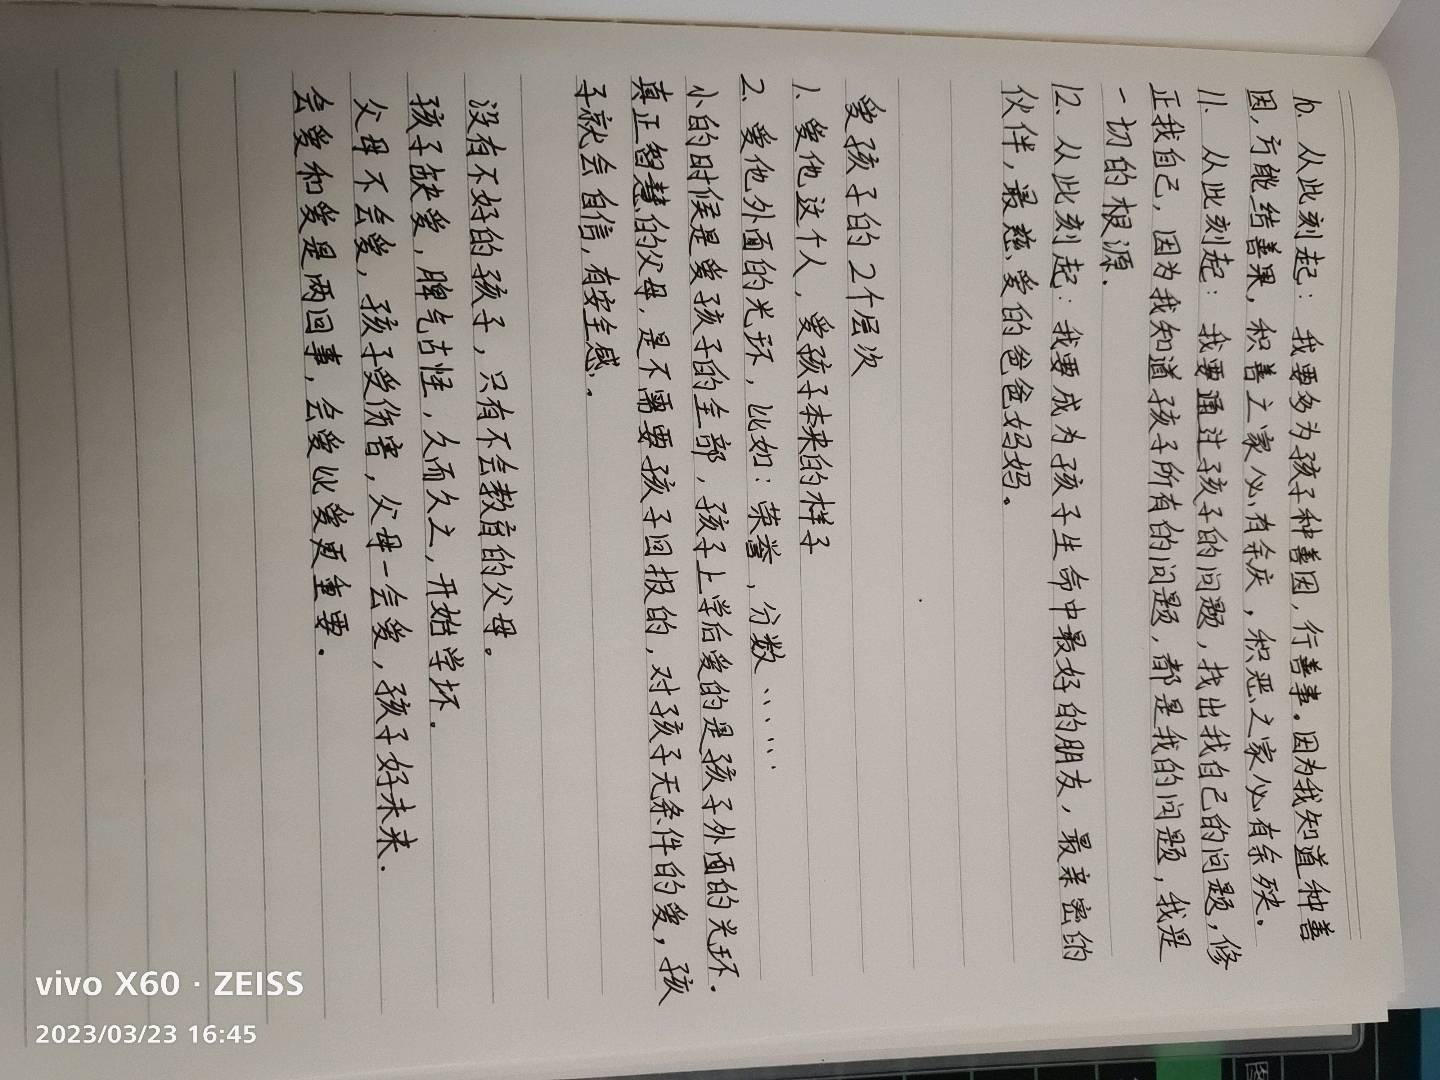 10. 从此刻起：我要多为孩子种善因，行善事。因为我知道种善
因，方能结善果，积善之家必有余庆，积恶之家必有余殃。
11. 从此刻起：我要通过孩子的问题，找出我自己的问题，修
正我自己，因为我知道孩子所有的问题，都是我的问题，我是
一切的根源.
12. 从此刻起：我要成为孩子生命中最好的朋友，最亲密的
伙伴，最慈爱的爸爸妈妈。
爱孩子的2个层次
1. 爱他这个人，爱孩子本来的样子
2. 爱他外面的光环，比如：荣誉，分数……
小的时候是爱孩子的全部，孩子上学后爱的是孩子外面的光环.
真正智慧的父母，是不需要孩子回报的，对孩子无条件的爱，孩
子就会自信，有安全感.
没有不好的孩子，只有不会教育的父母。
孩子缺爱，脾气古怪，久而久之，开始学坏.
父母不会爱，孩子受伤害，父母一会爱，孩子好未来.
会爱和爱是两回事，会爱比爱更重要.
vivo X60 · ZEISS
2023/03/23 16:45